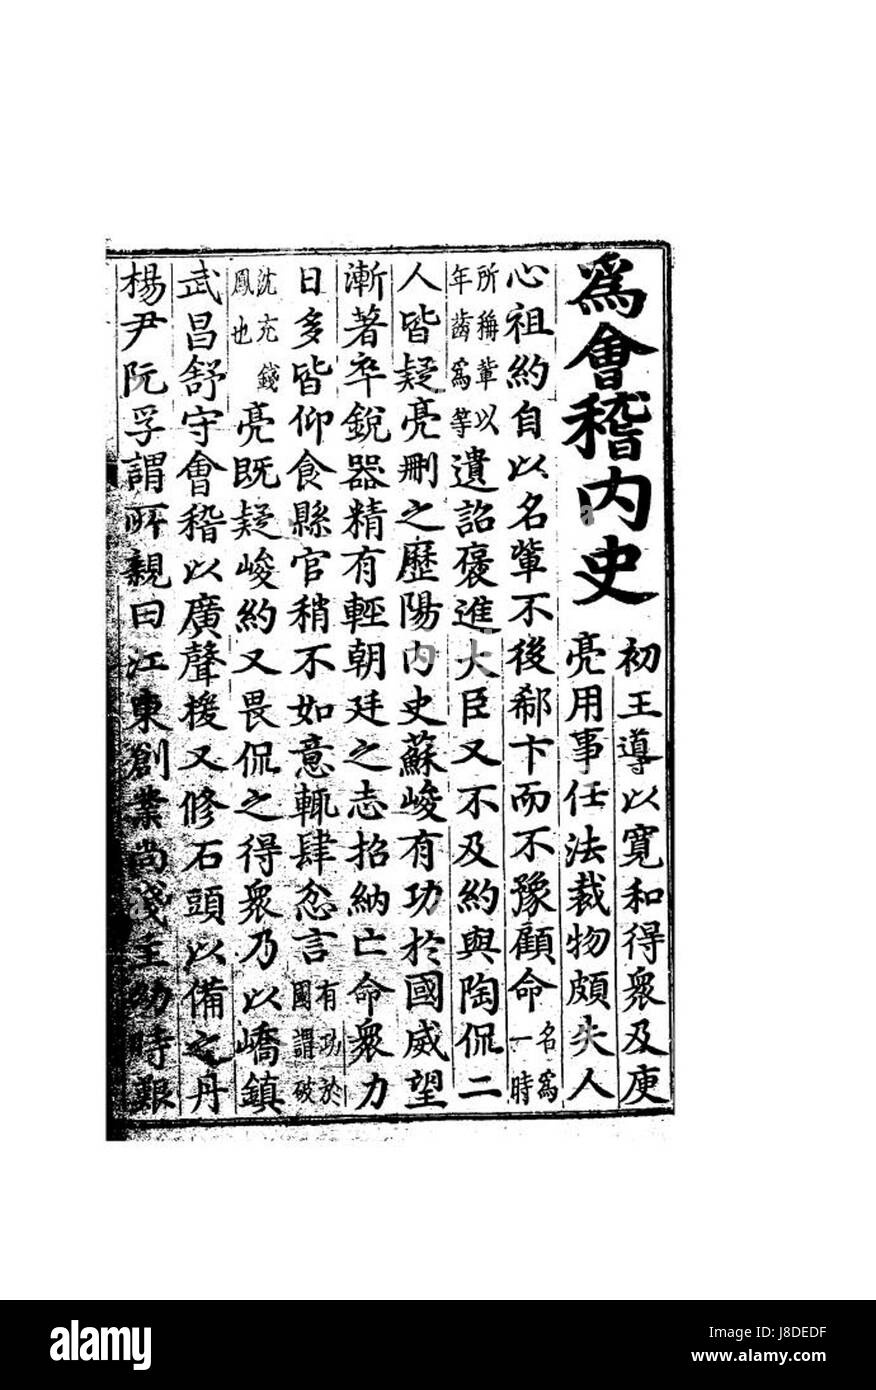 爲會稽内史
初王導以寬和得衆及庾
亮用事任法裁物頗失人
心祖約自以名輩不後郗卞而不豫顧命名爲一時
所稱輩以年齒爲等遺詔褒進大臣又不及約與陶侃二
人皆疑亮刪之歷陽内史蘇峻有功於國威望
漸著卒銳器精有輕朝廷之志招納亡命衆力
日多皆仰食縣官稍不如意輒肆忿言有功於國謂破
沈充錢鳳也亮既疑峻約又畏侃之得衆乃以嶠鎮
武昌舒守會稽以廣聲援又修石頭以備之丹
楊尹阮孚謂所親曰江東創業尚淺主幼時艱
alamy
Image ID: J8DEDF
www.alamy.com